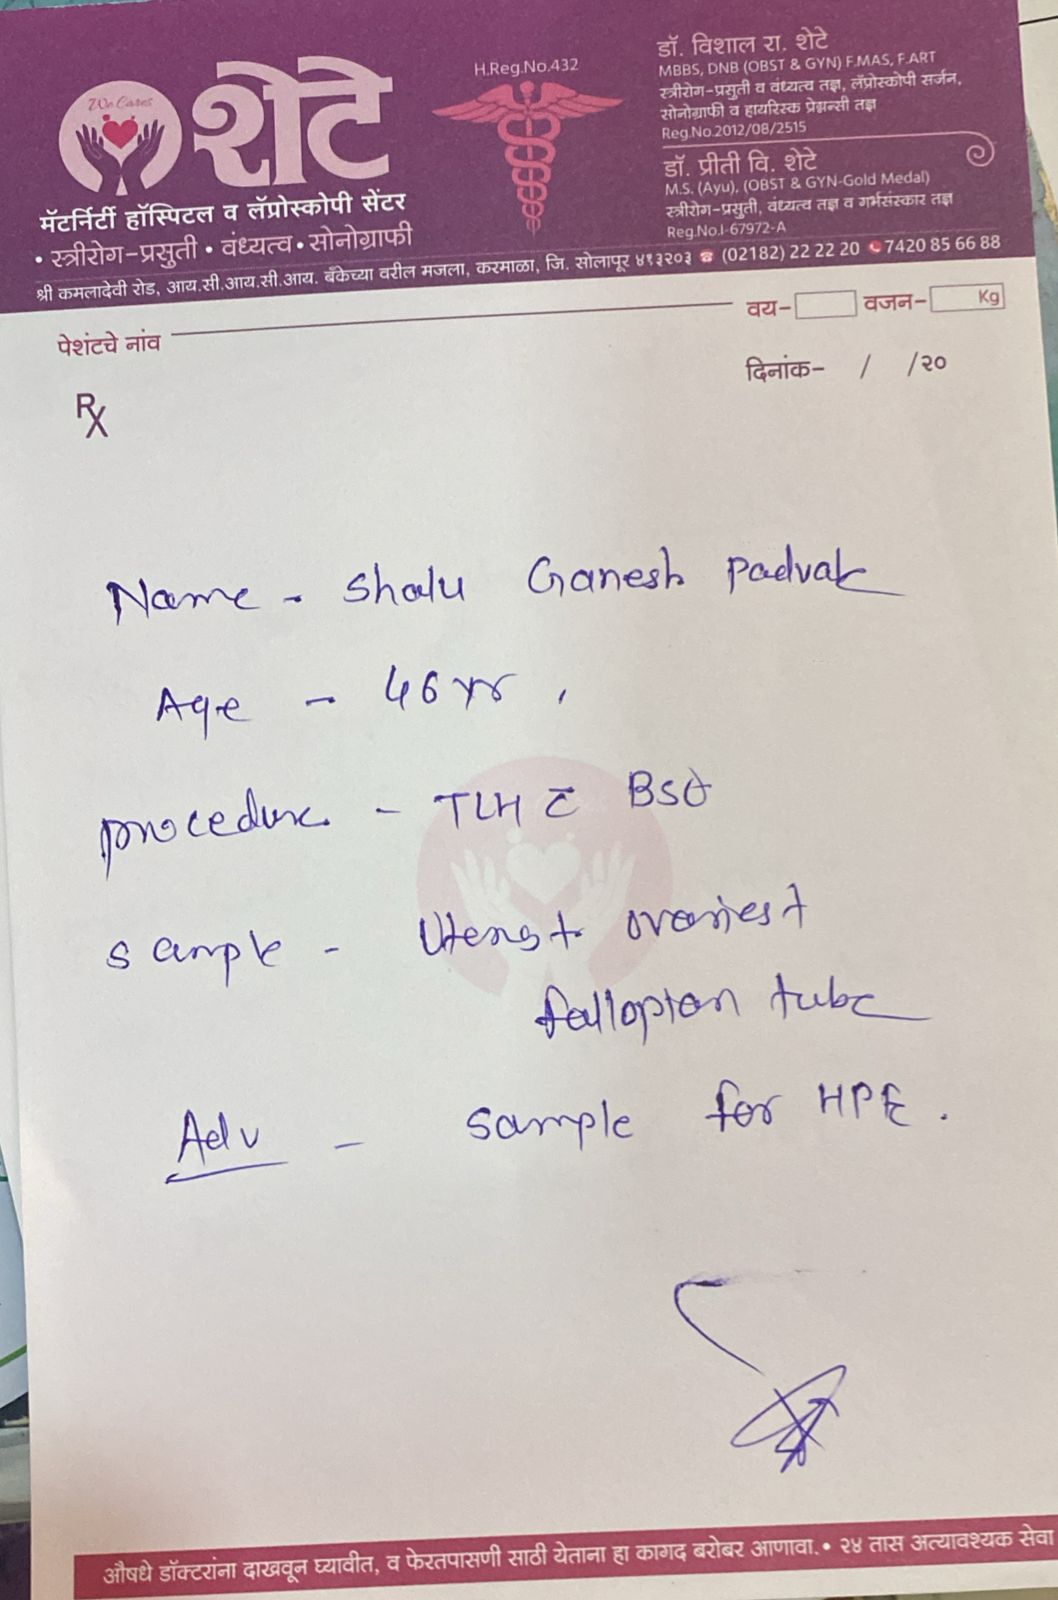 We Cares
शेटे
मॅटर्निर्टी हॉस्पिटल व लॅप्रोस्कोपी सेंटर
• स्त्रीरोग-प्रसुती • वंध्यत्व • सोनोग्राफी
H.Reg.No.432
डॉ. विशाल रा. शेटे
MBBS, DNB (OBST & GYN) F.MAS, F.ART
स्त्रीरोग-प्रसुती व वंध्यत्व तज्ञ, लॅप्रोस्कोपी सर्जन,
सोनोग्राफी व हायरिस्क प्रेग्नन्सी तज्ञ
Reg.No.2012/08/2515
डॉ. प्रीती वि. शेटे
M.S. (Ayu), (OBST & GYN-Gold Medal)
स्त्रीरोग-प्रसुती, वंध्यत्व तज्ञ व गर्भसंस्कार तज्ञ
Reg.No.I-67972-A
श्री कमलादेवी रोड, आय.सी.आय.सी.आय. बँकेच्या वरील मजला, करमाळा, जि. सोलापूर ४१३२०३ ☎ (02182) 22 22 20 7420 85 66 88
पेशंटचे नांव वय- वजन- Kg
दिनांक- / /२०
Rx
Name - Shalu Ganesh Padvak
Age - 46 yr.
procedure - TLH c̄ BSO
sample - Uterus + ovaries +
fallopian tube
Adv - sample for HPE.
औषधे डॉक्टरांना दाखवून घ्यावीत, व फेरतपासणी साठी येताना हा कागद बरोबर आणावा. • २४ तास अत्यावश्यक सेवा